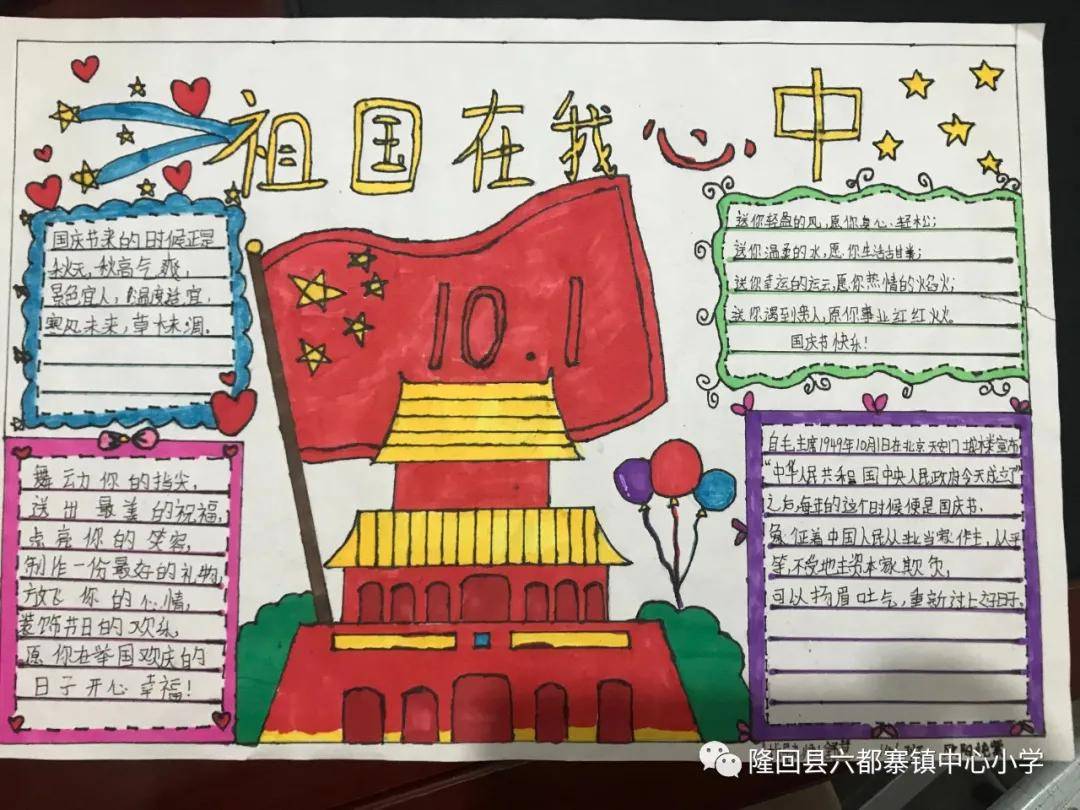 祖国在我心中
国庆节来的时候正是
秋天,秋高气爽,
景色宜人,温度适宜,
寒风未来,草木未凋。
10.1
送你轻盈的风,愿你身心轻松;
送你温柔的水,愿你生活甜美;
送你幸运的运云,愿你热情的火焰火;
送你遇到贵人,原你事业红红火火。
国庆节快乐!
舞动你的指尖,
送出最美的祝福,
点亮你的笑容,
制作一份最好的礼物,
放飞你的心情,
装饰节日的欢乐,
愿你在举国欢庆的
日子开心幸福!
自毛主席1949年10月1日在北京天安门城楼宣布
“中华人民共和国中央人民政府今天成立了”
之后,每年的这个时候便是国庆节,
象征着中国人民从此当家作主,从平
等,不受地主资本家欺负,
可以扬眉吐气,重新过上好日子。
隆回县六都寨镇中心小学